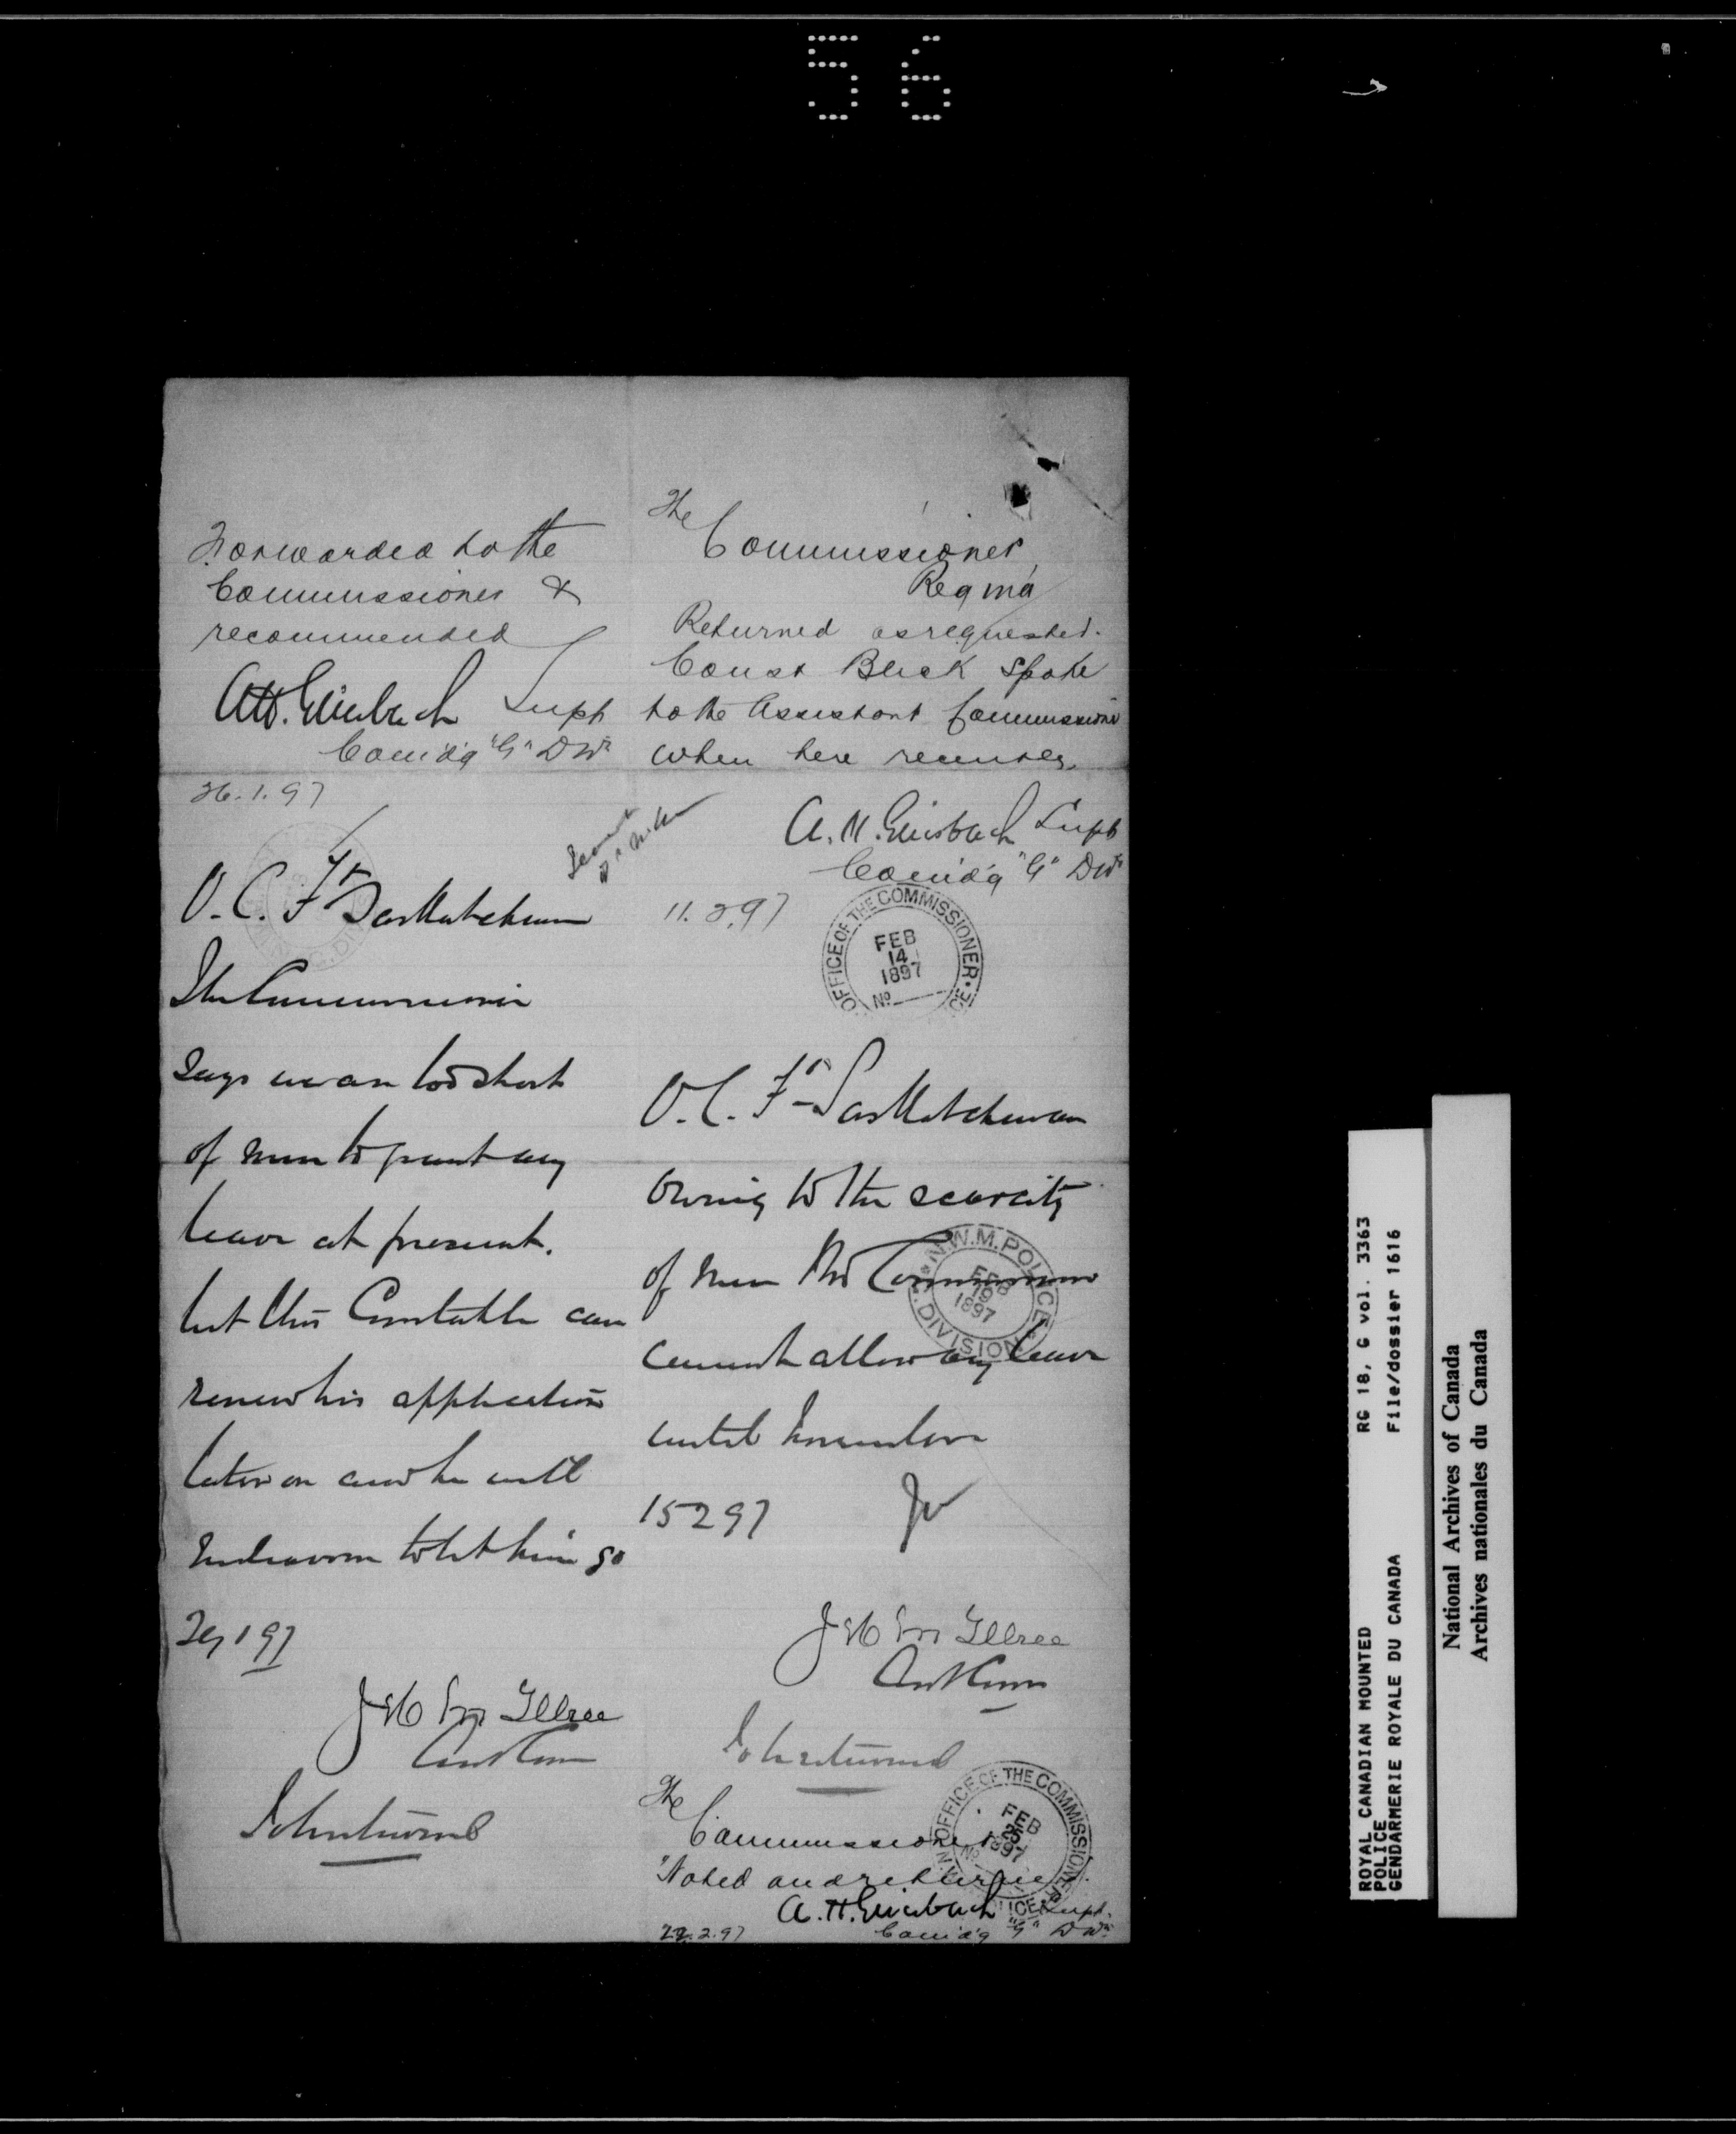 56
Forwarded to the
Commissioner &
recommended
A.H. Griesbach Supt
Com'd'g "G" Divn
26.1.97
O.C. Ft Saskatchewan
The Commissioner
says we are too short
of men to grant any
leave at present.
but this Constable can
renew his application
later on and he will
endeavour to let him go
29 1 97
J H McIllree
Asst Comr
To be returned
The
Commissioner
Regina
Returned as requested.
Const Black spoke
to the Assistant Commissioner
when here recently.
A.H. Griesbach Supt
Com'd'g "G" Divn
11.2.97
OFFICE OF THE COMMISSIONER
FEB
14
1897
No
O.C. Ft Saskatchewan
Owing to the scarcity
of men the Commissioner
cannot allow any leave
until
N.W.M. POLICE
FEB
19
1897
DIVISION
15 2 97
J H McIllree
Asst Comr
To be returned
The
Commissioner
Noted and returned
A.H. Griesbach Supt.
Com'd'g "G" Divn
22.2.97
OFFICE OF THE COMMISSIONER
FEB
25
1897
No
ROYAL CANADIAN MOUNTED RG 18, G vol. 3363
POLICE
GENDARMERIE ROYALE DU CANADA File/dossier 1616
National Archives of Canada
Archives nationales du Canada